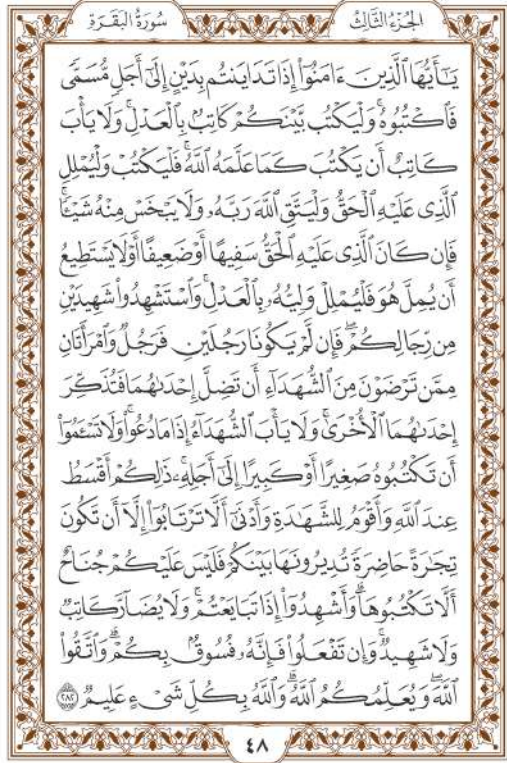 الجُزءُ الثَّالِثُ
سُورَةُ البَقَرَةِ
يَـٰٓأَيُّهَا ٱلَّذِينَ ءَامَنُوٓا۟ إِذَا تَدَايَنتُم بِدَيْنٍ إِلَىٰٓ أَجَلٍ مُّسَمًّى
فَٱكْتُبُوهُ ۚ وَلْيَكْتُب بَّيْنَكُمْ كَاتِبٌۢ بِٱلْعَدْلِ ۚ وَلَا يَأْبَ
كَاتِبٌ أَن يَكْتُبَ كَمَا عَلَّمَهُ ٱللَّهُ ۚ فَلْيَكْتُبْ وَلْيُمْلِلِ
ٱلَّذِى عَلَيْهِ ٱلْحَقُّ وَلْيَتَّقِ ٱللَّهَ رَبَّهُۥ وَلَا يَبْخَسْ مِنْهُ شَيْـًٔا ۚ
فَإِن كَانَ ٱلَّذِى عَلَيْهِ ٱلْحَقُّ سَفِيهًا أَوْ ضَعِيفًا أَوْ لَا يَسْتَطِيعُ
أَن يُمِلَّ هُوَ فَلْيُمْلِلْ وَلِيُّهُۥ بِٱلْعَدْلِ ۚ وَٱسْتَشْهِدُوا۟ شَهِيدَيْنِ
مِن رِّجَالِكُمْ ۖ فَإِن لَّمْ يَكُونَا رَجُلَيْنِ فَرَجُلٌ وَٱمْرَأَتَانِ
مِمَّن تَرْضَوْنَ مِنَ ٱلشُّهَدَآءِ أَن تَضِلَّ إِحْدَىٰهُمَا فَتُذَكِّرَ
إِحْدَىٰهُمَا ٱلْأُخْرَىٰ ۚ وَلَا يَأْبَ ٱلشُّهَدَآءُ إِذَا مَا دُعُوا۟ ۚ وَلَا تَسْـَٔمُوٓا۟
أَن تَكْتُبُوهُ صَغِيرًا أَوْ كَبِيرًا إِلَىٰٓ أَجَلِهِۦ ۚ ذَٰلِكُمْ أَقْسَطُ
عِندَ ٱللَّهِ وَأَقْوَمُ لِلشَّهَـٰدَةِ وَأَدْنَىٰٓ أَلَّا تَرْتَابُوٓا۟ ۖ إِلَّآ أَن تَكُونَ
تِجَـٰرَةً حَاضِرَةً تُدِيرُونَهَا بَيْنَكُمْ فَلَيْسَ عَلَيْكُمْ جُنَاحٌ
أَلَّا تَكْتُبُوهَا ۗ وَأَشْهِدُوٓا۟ إِذَا تَبَايَعْتُمْ ۚ وَلَا يُضَآرَّ كَاتِبٌ
وَلَا شَهِيدٌ ۚ وَإِن تَفْعَلُوا۟ فَإِنَّهُۥ فُسُوقٌۢ بِكُمْ ۗ وَٱتَّقُوا۟
ٱللَّهَ ۖ وَيُعَلِّمُكُمُ ٱللَّهُ ۗ وَٱللَّهُ بِكُلِّ شَىْءٍ عَلِيمٌ ٢٨٢
٤٨